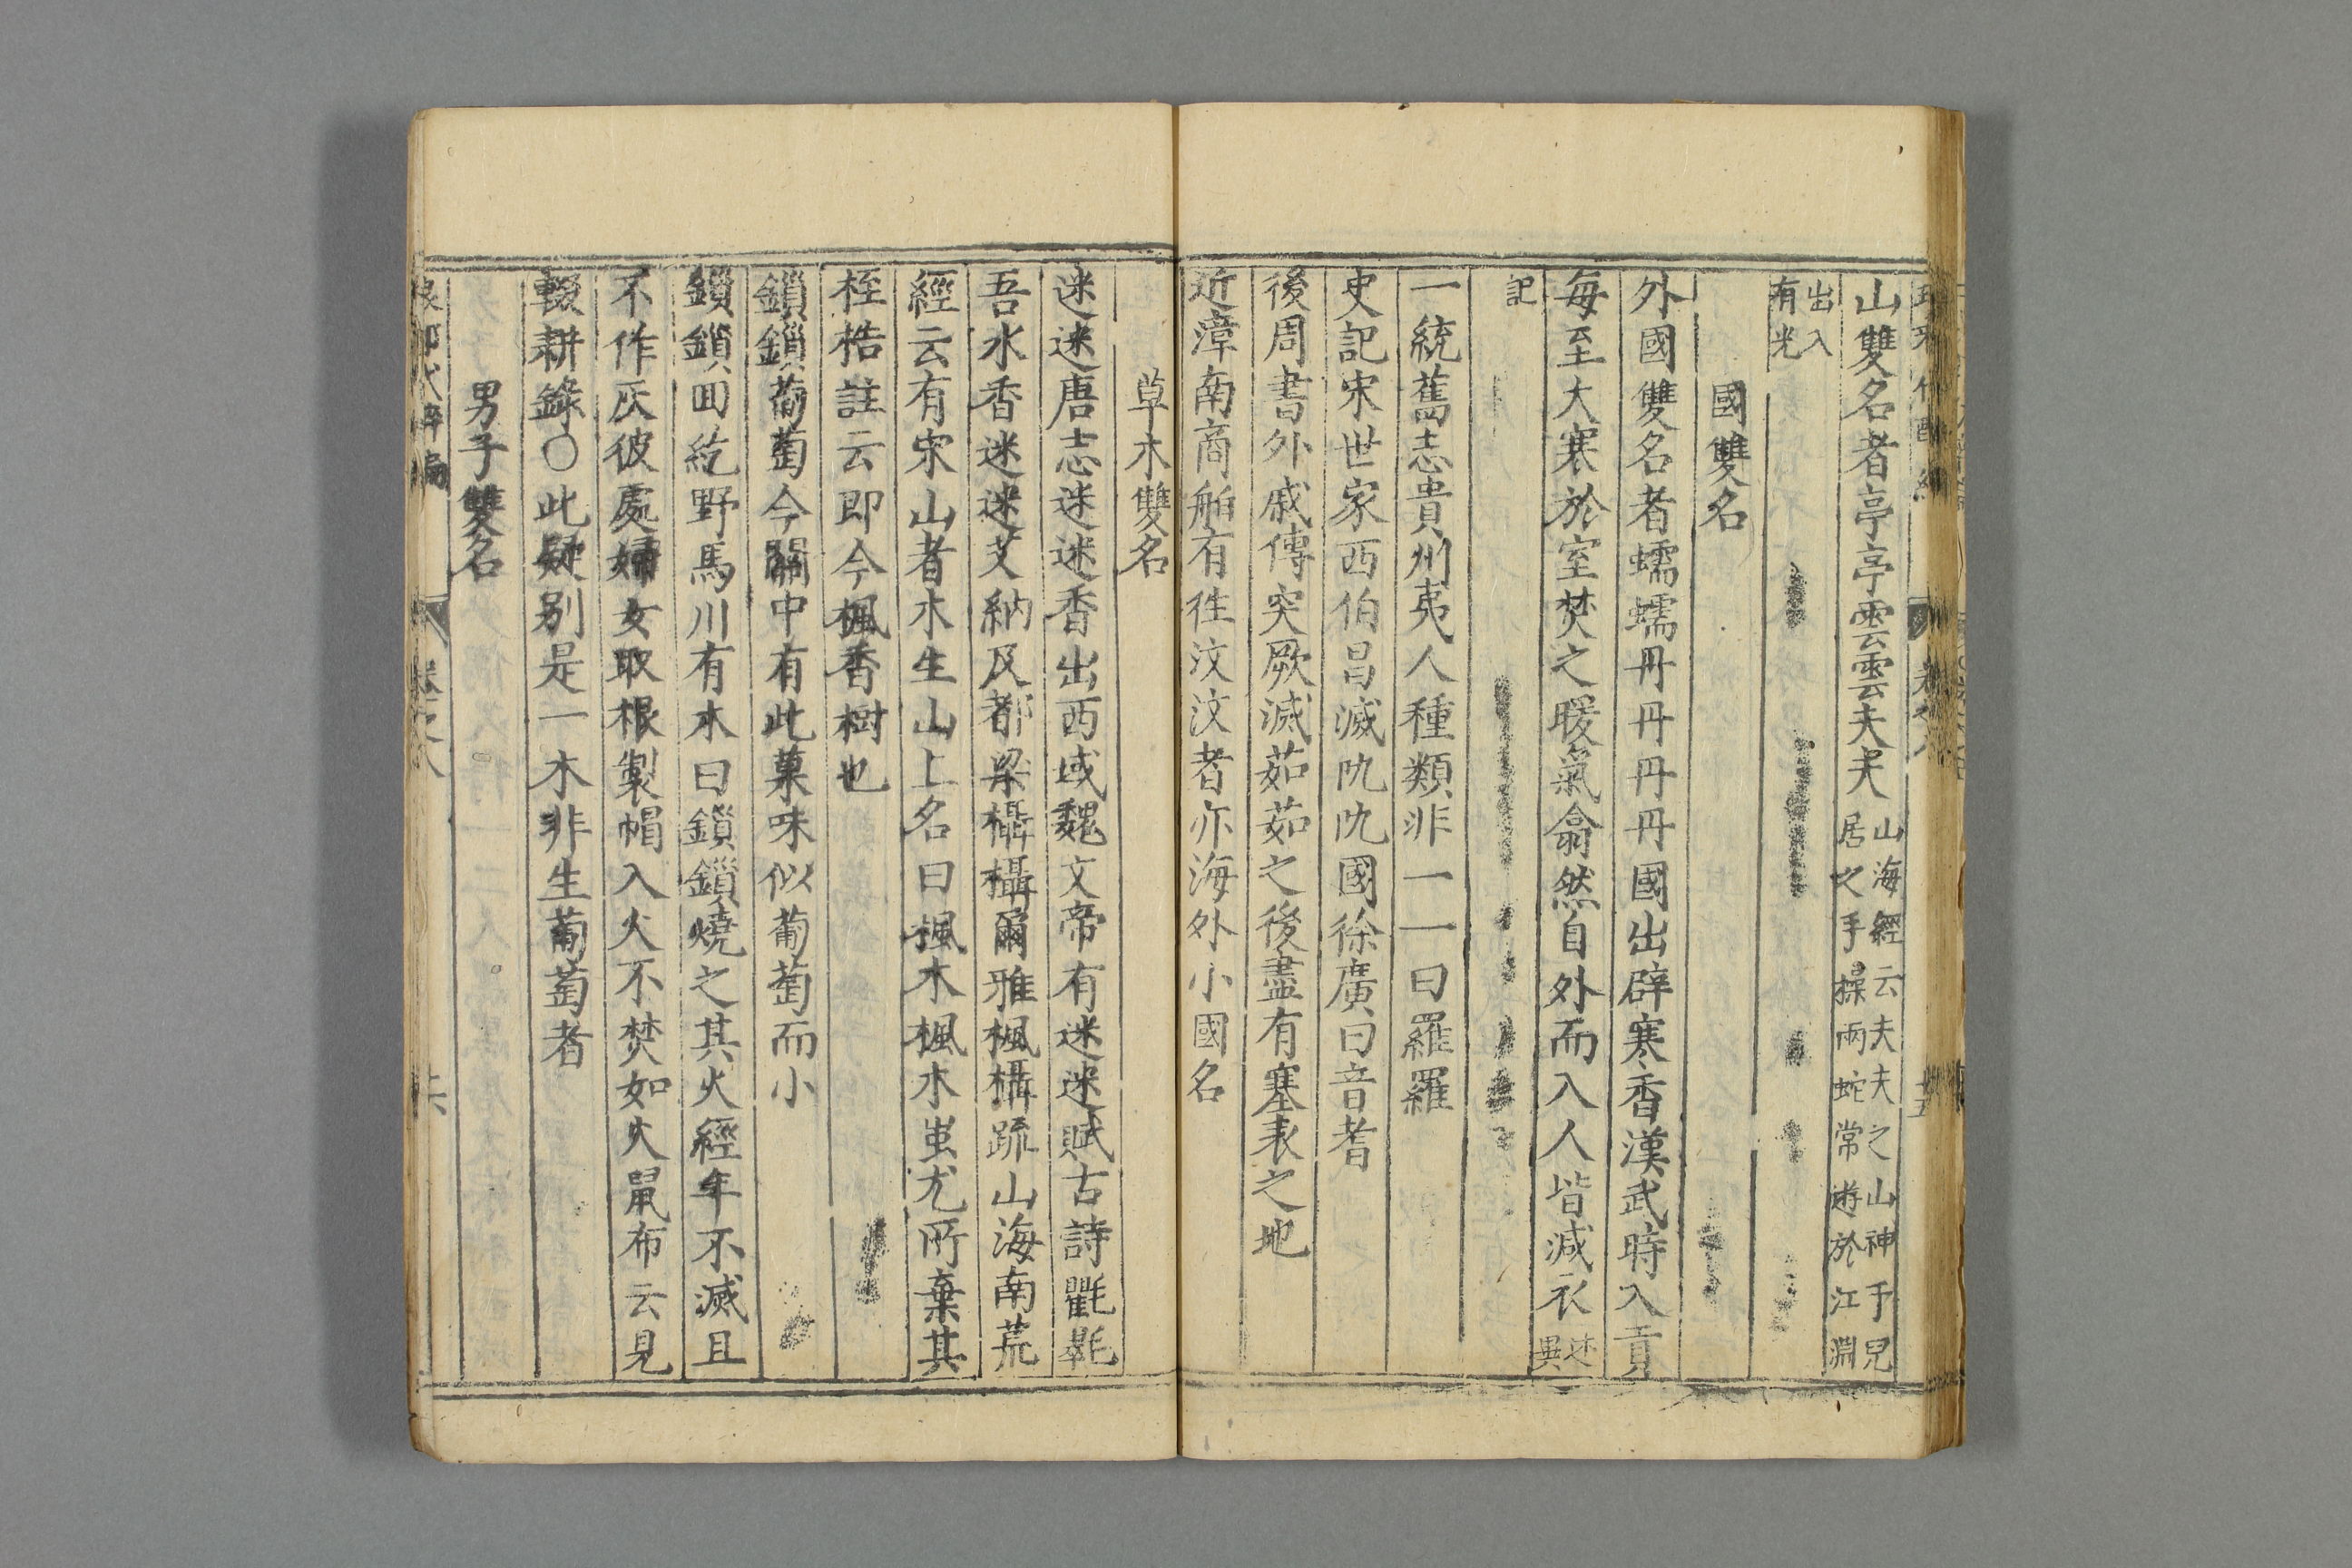 山雙名者亭亭雲雲夫夫山海經云夫夫之山神于兒居之手操兩蛇常遊於江淵
出入有光
國雙名
外國雙名者蠕蠕丹丹丹丹國出辟寒香漢武時入貢
每至大寒於室焚之暖氣翕然自外而入人皆減衣述異
記
一統舊志貴州夷人種類非一一曰羅羅
史記宋世家西伯昌滅阢阢國徐廣曰音耆
後周書外戚傳突厥滅茹茹之後盡有塞表之地
近漳南商舶有往汶汶者亦海外小國名
草木雙名
迷迷唐志迷迷香出西域魏文帝有迷迷賦古詩氍毹
吾水香迷迷艾納及都梁欇欇爾雅楓欇疏山海南荒
經云有宋山者木生山上名曰楓木楓木蚩尤所棄其
桎梏註云即今楓香樹也
鎖鎖葡萄今關中有此菓味似葡萄而小
鎖鎖回紇野馬川有木曰鎖鎖燒之其火經年不滅且
不作灰彼處婦女取根製帽入火不焚如火鼠布云見
輟耕錄○此疑別是一木非生葡萄者
男子雙名
卷之八